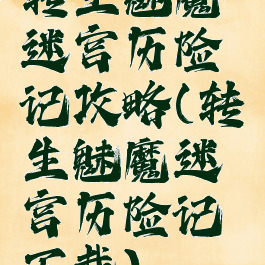 转生魅魔
迷宫历险
记攻略(转
生魅魔迷
宫历险记
下载)